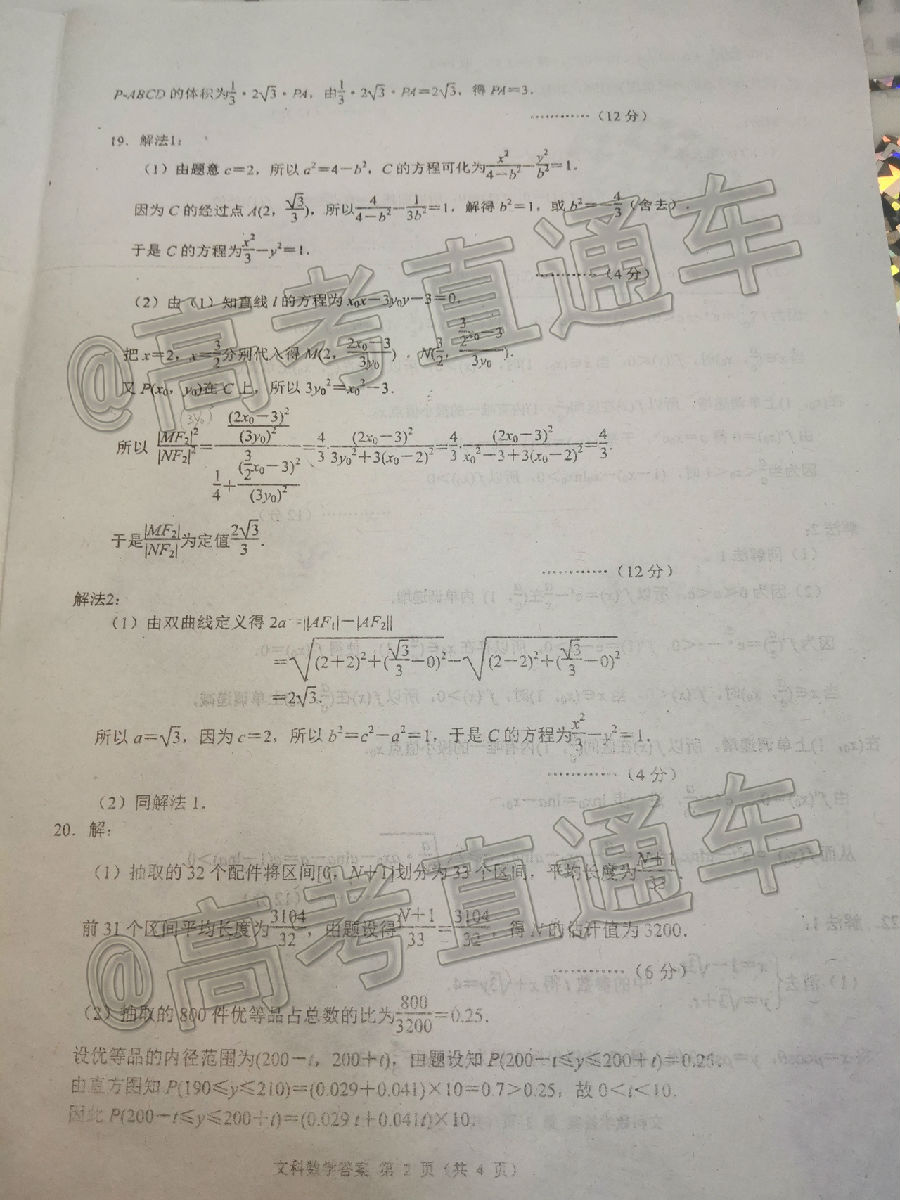 P-ABCD 的体积为1/3·2√3·PA，由1/3·2√3·PA=2√3，得 PA=3．
…………（12 分）
19．解法1：
（1）由题意 c=2，所以 a²=4−b²，C 的方程可化为x²/(4−b²)−y²/b²=1．
因为 C 的经过点 A(2，√3/3)，所以4/(4−b²)−1/(3b²)=1，解得 b²=1，或 b²=−4/3（舍去）．
于是 C 的方程为x²/3−y²=1．
…………（4 分）
（2）由（1）知直线 l 的方程为 x₀x−3y₀y−3=0．
把 x=2，x=3/2分别代入得 M(2，(2x₀−3)/(3y₀))，N(3/2，((3/2)x₀−3)/(3y₀))．
又 P(x₀，y₀)在 C 上，所以 3y₀²=x₀²−3．
所以 |MF₂|²/|NF₂|²=((2x₀−3)²/(3y₀)²)/(1/4+((3/2)x₀−3)²/(3y₀)²)=4/3·(2x₀−3)²/(3y₀²+3(x₀−2)²)=4/3·(2x₀−3)²/(x₀²−3+3(x₀−2)²)=4/3．
于是|MF₂|/|NF₂|为定值2√3/3．
…………（12 分）
解法2：
（1）由双曲线定义得 2a=||AF₁|−|AF₂||
=√((2+2)²+(√3/3−0)²)−√((2−2)²+(√3/3−0)²)
=2√3．
所以 a=√3，因为 c=2，所以 b²=c²−a²=1，于是 C 的方程为x²/3−y²=1．
…………（4 分）
（2）同解法 1．
20．解：
（1）抽取的 32 个配件将区间[0，N+1]划分为 33 个区间，平均长度为(N+1)/33．
前 31 个区间平均长度为3104/32，由题设得(N+1)/33=3104/32，得 N 的估计值为 3200．
…………（6 分）
（2）抽取的 800 件优等品占总数的比为800/3200=0.25．
设优等品的内径范围为(200−t，200+t)，由题设知 P(200−t≤y≤200+t)=0.25．
由直方图知 P(190≤y≤210)=(0.029+0.041)×10=0.7>0.25，故 0<t<10．
因此 P(200−t≤y≤200+t)=(0.029 t+0.041t)×10．
文科数学答案 第 2 页（共 4 页）
@高考直通车
@高考直通车